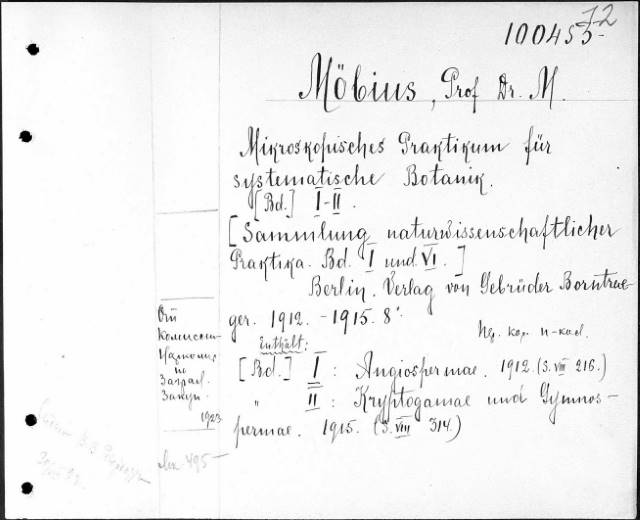 72
100455-
Möbius, Prof Dr. M.
Mikroskopisches Praktikum für
systematische Botanik.
[Bd.] I-II.
[Sammlung naturwissenschaftlicher
Praktika. Bd. I und VI.]
Berlin. Verlag von Gebrüder Borntrae-
ger. 1912. - 1915. 8°.
Enthält:
[Bd.] I : Angiospermae. 1912. (S. VIII 216.)
" II : Kryptogamae und Gymnos-
permae. 1915. (S. VIII 314.)
От
Комиссии
Наркомпр
по
Заграл.
Закуп.
1923.
495-